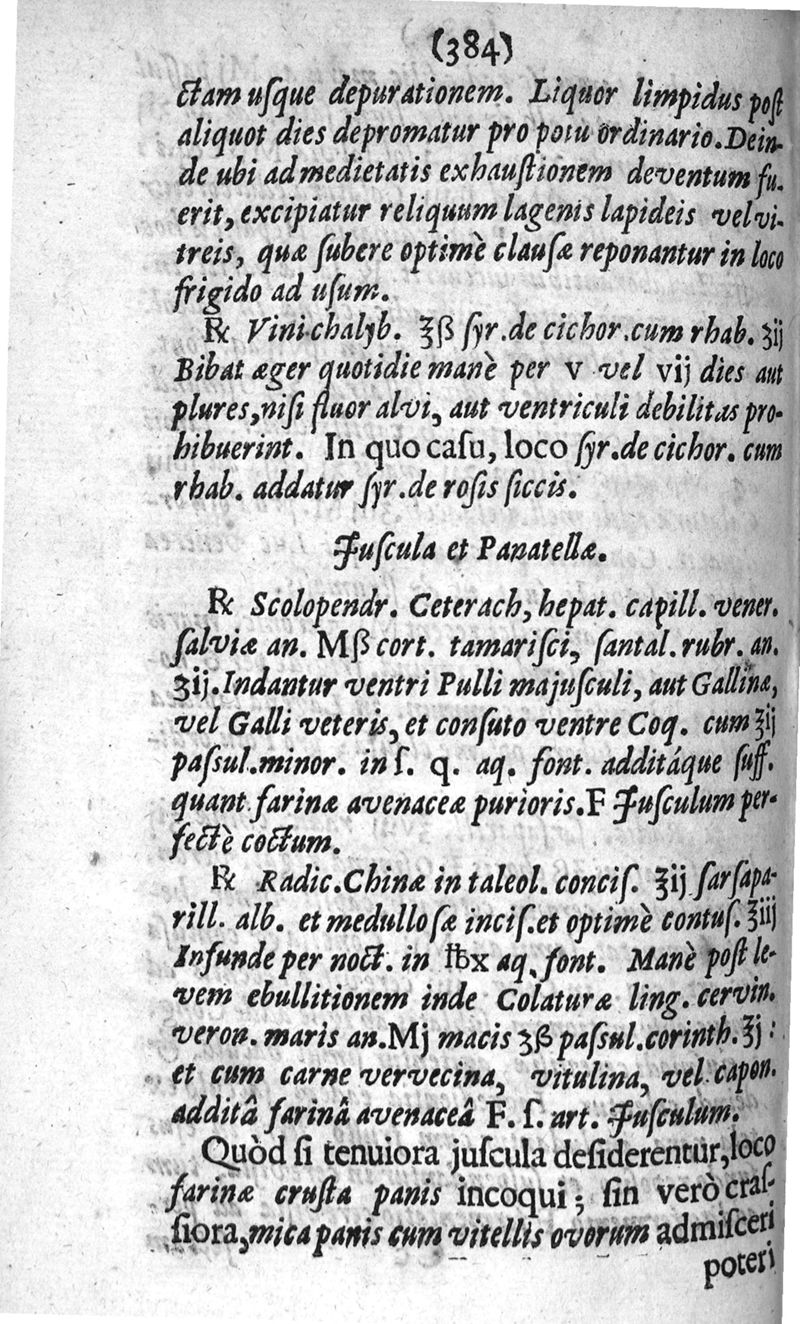 (384)
ctam uſque depurationem. Liquor limpidus poſt
aliquot dies depromatur pro potu ordinario. Dein-
de ubi ad medietatis exhauſtionem deventum fu-
erit, excipiatur reliquum lagenis lapideis vel vi-
treis, quæ ſubere optimè clauſæ reponantur in loco
frigido ad uſum.
℞ Vini chalyb. ℥ß ſyr. de cichor. cum rhab. ʒij
Bibat æger quotidie manè per v vel vij dies aut
plures, niſi fluor alvi, aut ventriculi debilitas pro-
hibuerint. In quo caſu, loco ſyr. de cichor. cum
rhab. addatur ſyr. de roſis ſiccis.
Juſcula et Panatellæ.
℞ Scolopendr. Ceterach, hepat. capill. vener.
ſalviæ an. Mß cort. tamariſci, ſantal. rubr. an.
ʒij. Indantur ventri Pulli majuſculi, aut Gallinæ,
vel Galli veteris, et conſuto ventre Coq. cum ℥ij
paſsul. minor. in ſ. q. aq. font. additáque ſuff.
quant farinæ avenaceæ purioris. F Juſculum per-
fectè coctum.
℞ Radic. Chinæ in taleol. conciſ. ℥ij ſarſapa-
rill. alb. et medulloſæ inciſ. et optimè contuſ. ℥iij
Infunde per noct. in ℔x aq. font. Manè poſt le-
vem ebullitionem inde Colaturæ ling. cervin.
veron. maris an. Mj macis ʒß paſsul. corinth. ℥j:
et cum carne vervecina, vitulina, vel capon.
additâ farinâ avenaceâ F. ſ. art. Juſculum.
Quòd ſi tenuiora juſcula deſiderentur, loco
farinæ cruſta panis incoqui; ſin verò craſ-
ſiora, mica panis cum vitellis ovorum admiſceri
poteri